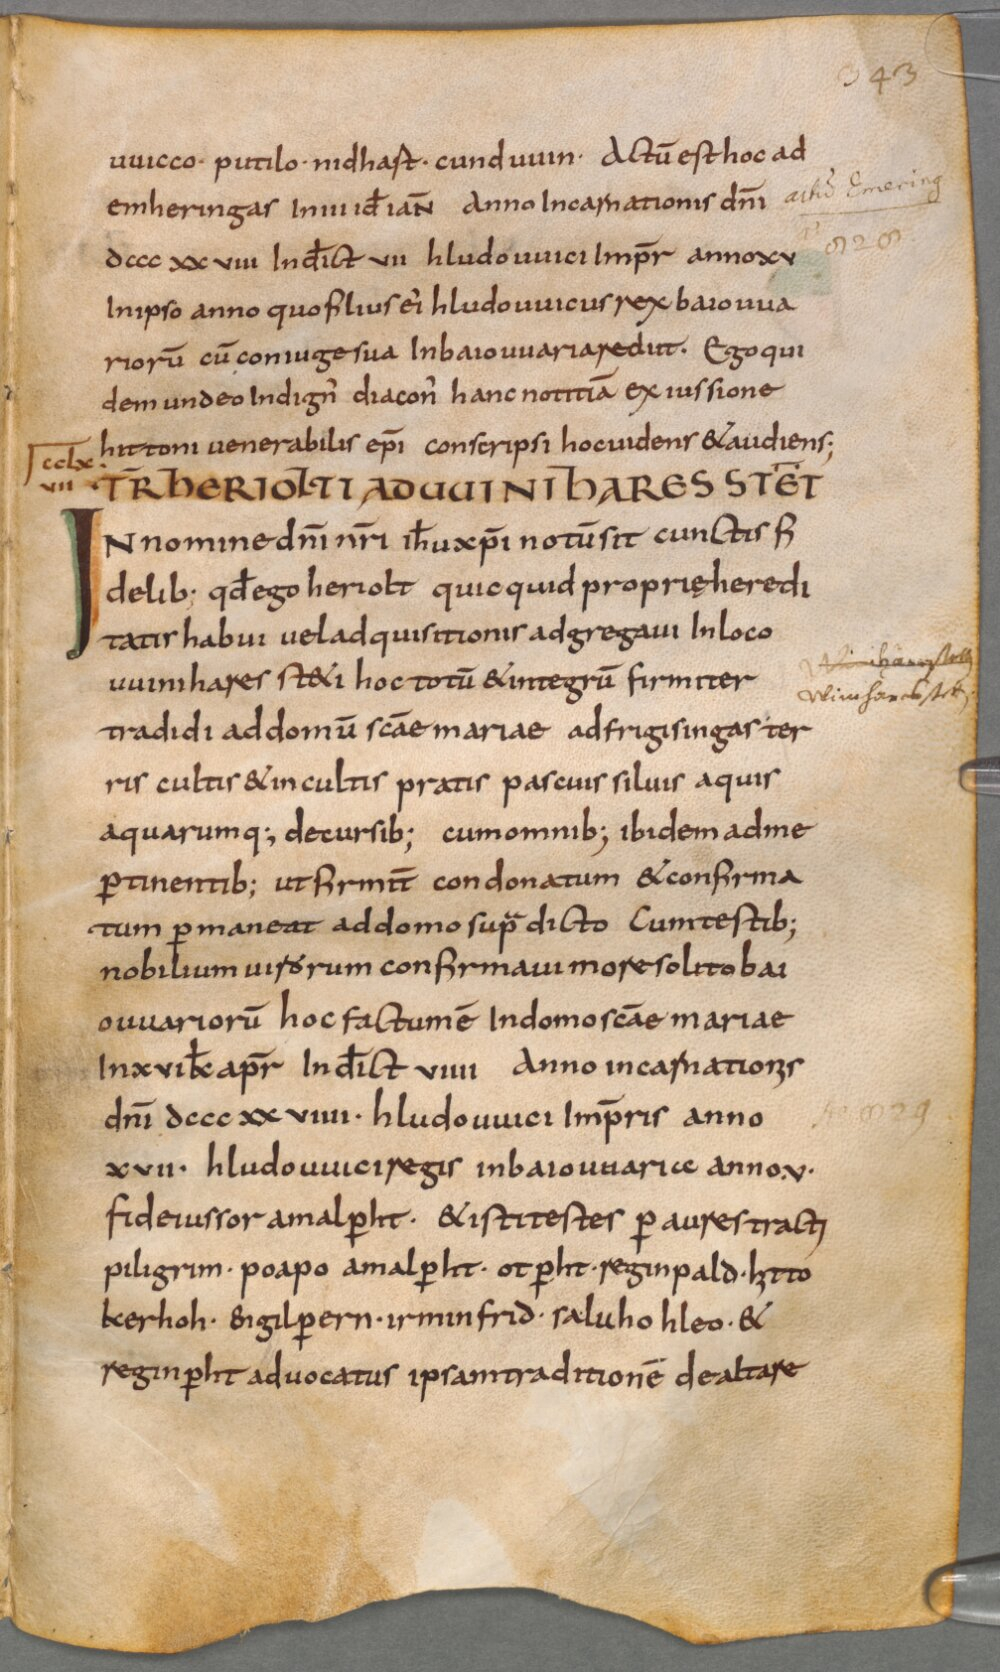 343
uuicco · putilo · nidhast · cunduuin · Actū est hoc ad
emheringas In iiii id̄ ianꝶ Anno Incarnationis dn̄i
aihd Emering
828
dccc xx viii Ind̄ict vii hludouuici Imp̄r anno xv
In ipso anno quo filius ei' hludouuicus rex baiouua
riorū cū coniuge sua In baiouuaria rediit. Ego qui
dem undeo Indign' diacon' hanc notitiā ex iussione
hittoni venerabilis ep̄i conscripsi hoc uidens & audiens;
cclx
vii
TR̄ HERIOLTI AD UUINIHARES STET̄
IN nomine dn̄i nr̄i ih̄u xp̄i notū sit cunctis fi
delib; qd̄ ego heriolt quicquid proprię heredi
tatis habui vel adquisitionis adgregaui In loco
uuinihares steti hoc totū & integrū firmiter
Winharsstett
Winharsstett
tradidi ad domū scāe mariae ad frigisingas ter
ris cultis & incultis pratis pascuis siluis aquis
aquarumq; decursib; cum omnib; ibidem ad me
ꝑtinentib; ut firmit̄ condonatum & confirma
tum ꝑmaneat ad domo supᷓ dicto Cum testib;
nobilium uirorum confirmaui more solito bai
ouuariorū hoc factum ē In domo scāe mariae
In xvi kł apr̄ Ind̄ict viiii Anno incarnationis
dn̄i dccc xx viiii · hludouuici Imp̄ris anno
829
xvii · hludouuici regis in baiouuariæ anno v ·
fideiussor amalꝑht · & isti testes ꝑ aures tracti
piligrim · poapo amalꝑht · otꝑht · reginpald · hitto
kerhoh · sigilꝑern · irminfrid · saluho hleo · &
reginꝑht aduocatus ipsam traditionē de altare